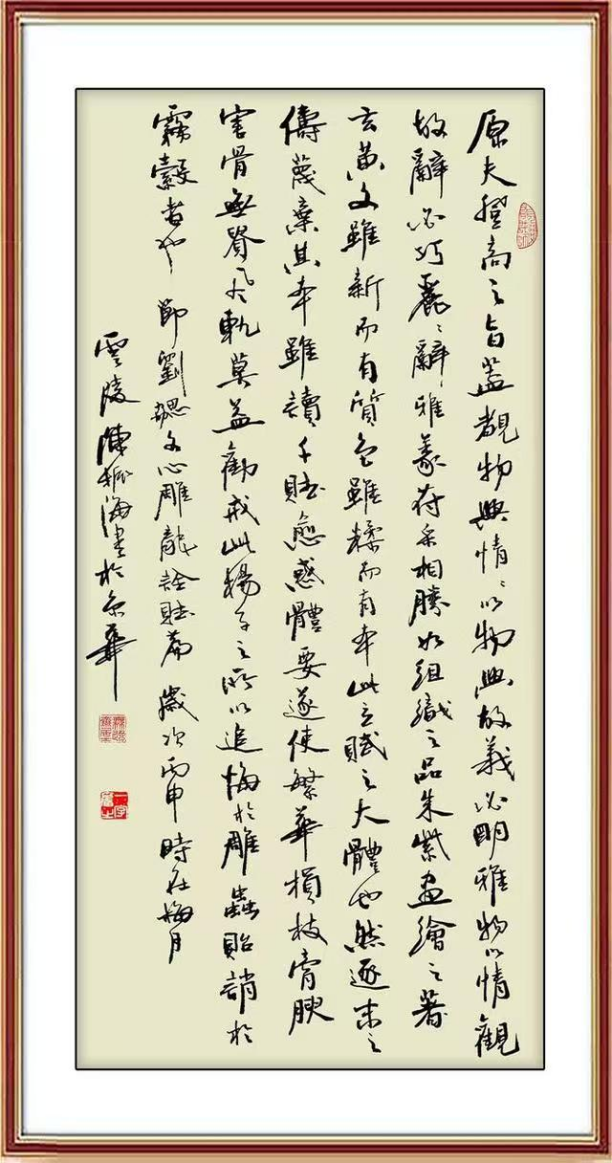 原夫登高之旨蓋覩物興情〻以物興故義必明雅物以情觀
故辭必巧麗〻辭雅義符采相勝如組織之品朱紫畫繪之著
玄黃文雖新而有質色雖糅而有本此立賦之大體也然逐末之
儔蔑棄其本雖讀千賦愈惑體要遂使繁華損枝膏腴
害骨無貴風軌莫益勸戒此揚子之所以追悔於雕蟲貽誚於
霧縠者也 節劉勰文心雕龍詮賦篇 歲次丙申時在梅月
雲陵陳海書於京華